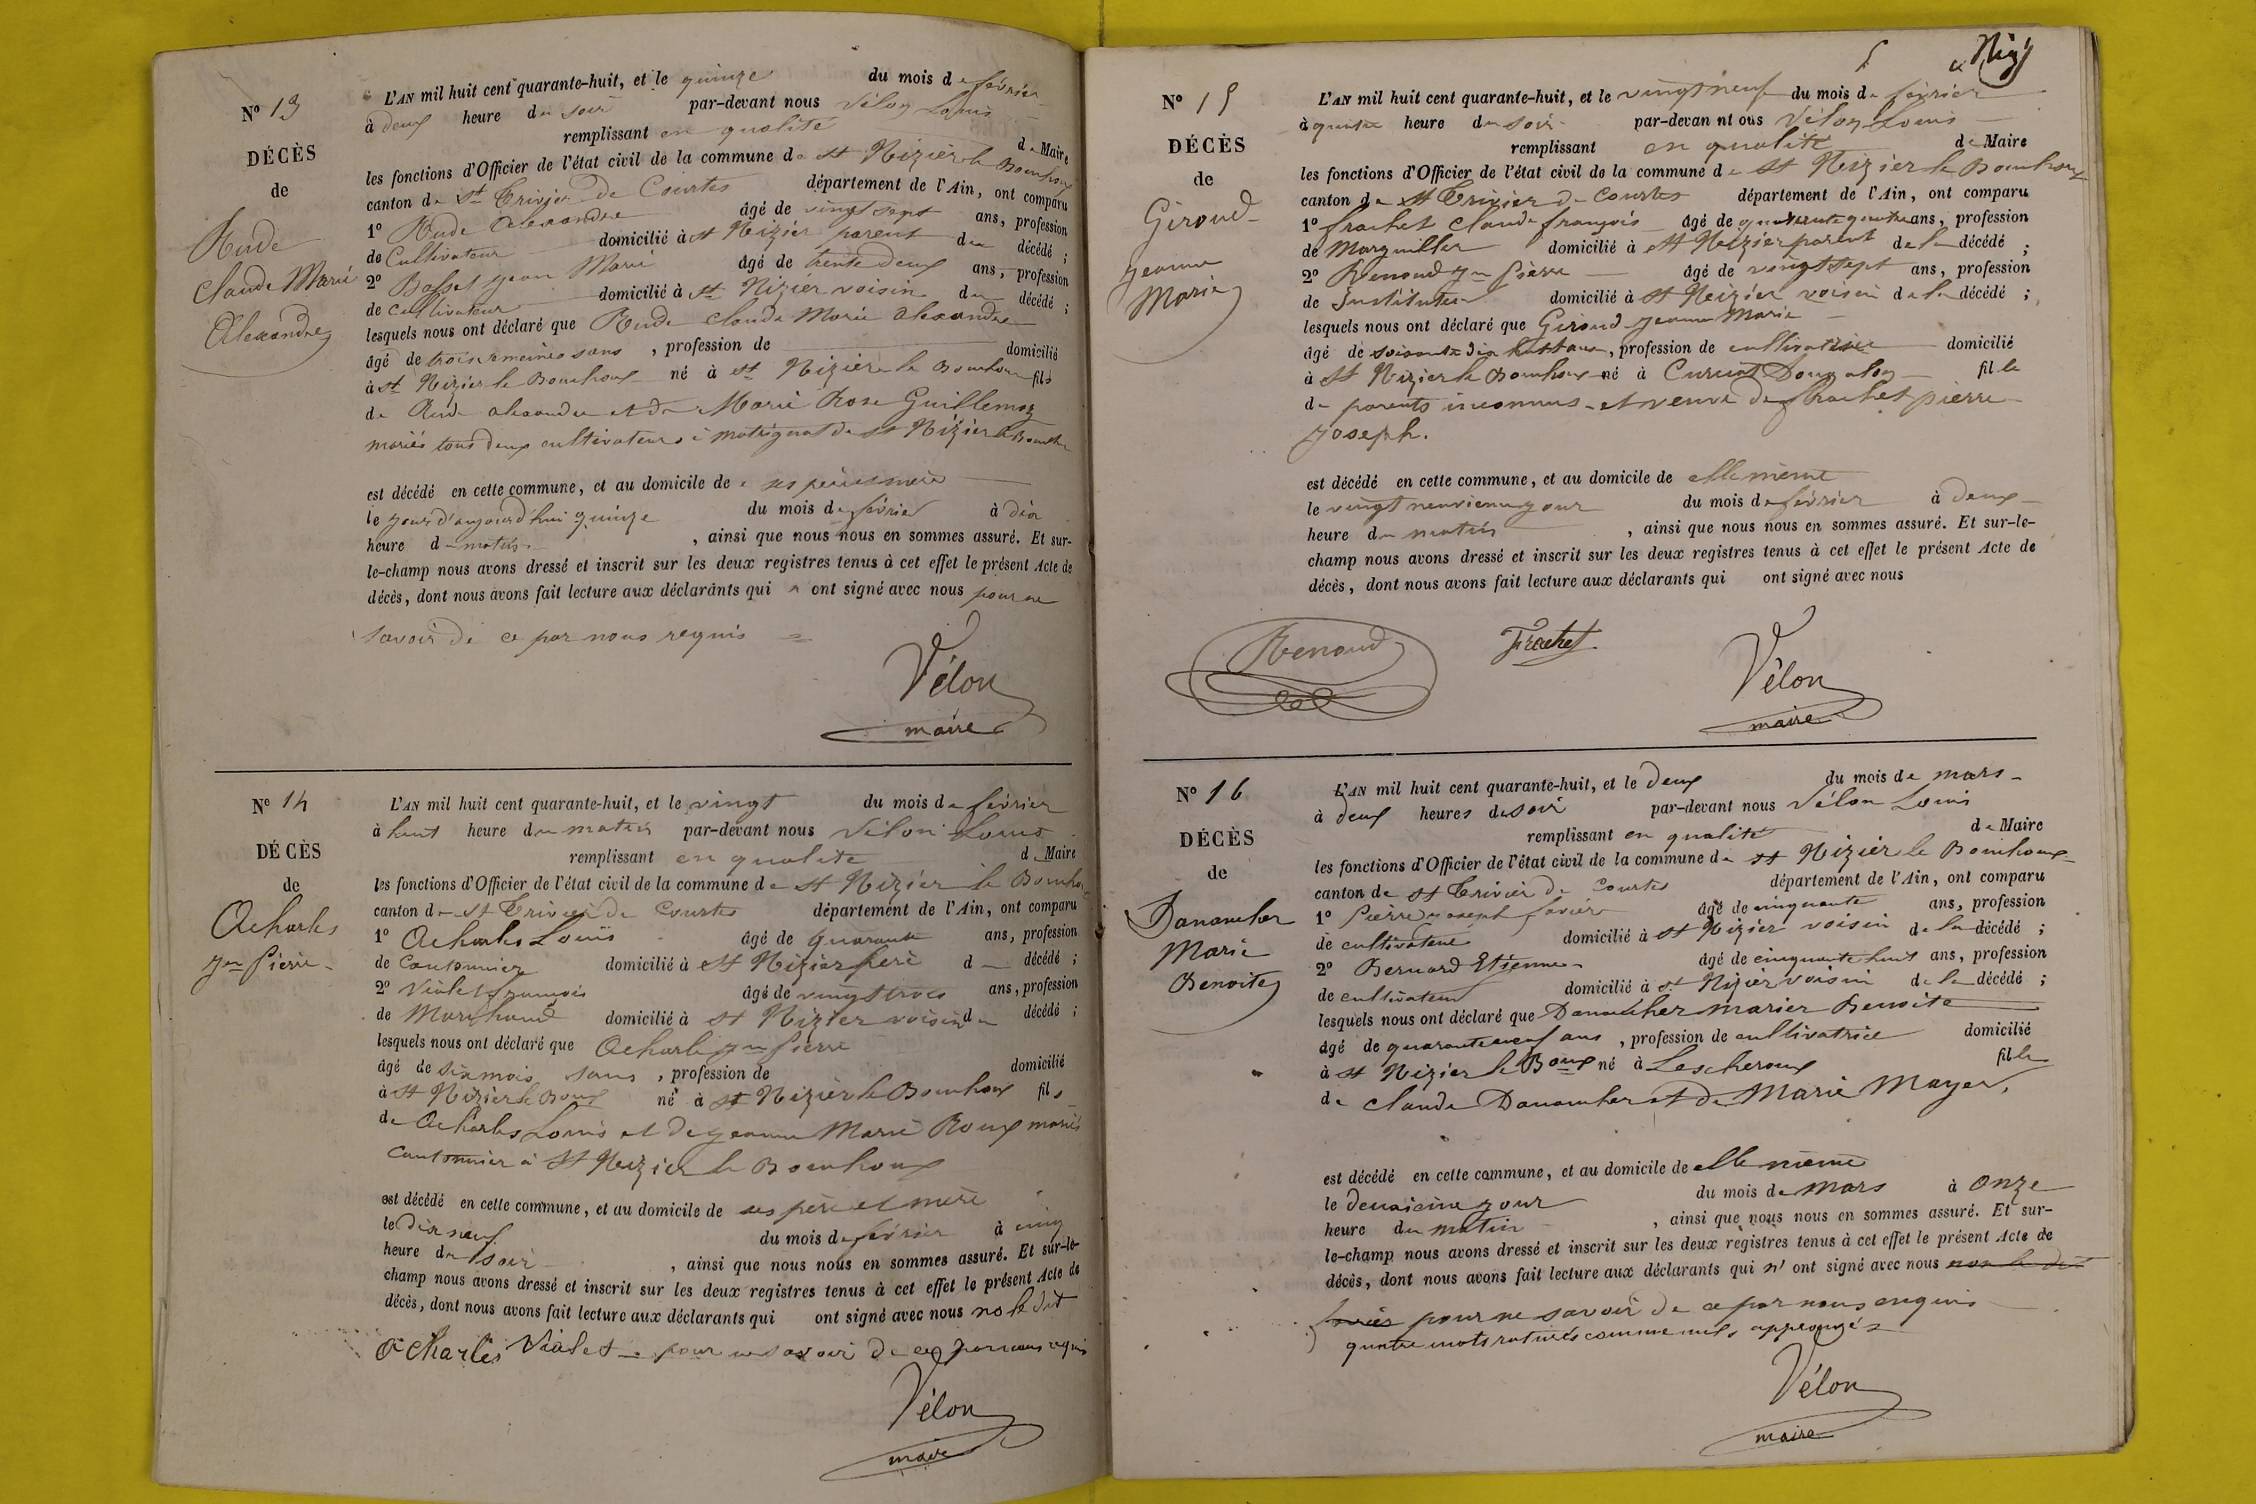 N° 13
DÉCÈS
de
Rude
Claude Marie
Alexandre
L'AN mil huit cent quarante-huit, et le quinze du mois de février
à deux heure du soir par-devant nous Vélon Louis
remplissant en qualité de Maire
les fonctions d'Officier de l'état civil de la commune de St Nizier le Bouchoux
canton de St Trivier de Courtes département de l'Ain, ont comparu
1° Rude Alexandre âgé de vingt sept ans, profession
de Cultivateur domicilié à St Nizier parent du décédé ;
2° Basset Jean Marie âgé de trente deux ans, profession
de cultivateur domicilié à St Nizier voisin du décédé ;
lesquels nous ont déclaré que Rude Claude Marie Alexandre
âgé de trois semaines sans , profession de domicilié
à St Nizier le Bouchoux né à St Nizier le Bouchoux fils
de Rude Alexandre et de Marie Rose Guillemoz
mariés tous deux cultivateurs à St Nizier le Bouchx
est décédé en cette commune, et au domicile de ses père et mère
le jour d'aujourd'hui quinze du mois de février à dix
heure du matin , ainsi que nous nous en sommes assuré. Et sur-
le-champ nous avons dressé et inscrit sur les deux registres tenus à cet effet le présent Acte de
décès, dont nous avons fait lecture aux déclarants qui n' ont signé avec nous pour ne
savoir de ce par nous requis
Vélon
maire
N° 14
DÉCÈS
de
Acharles
Jn Pierre
L'AN mil huit cent quarante-huit, et le vingt du mois de février
à huit heure du matin par-devant nous Vélon Louis
remplissant en qualité de Maire
les fonctions d'Officier de l'état civil de la commune de St Nizier le Bouchoux
canton de St Trivier de Courtes département de l'Ain, ont comparu
1° Acharles Louis âgé de quarante ans, profession
de Cantonnier domicilié à St Nizier père d décédé ;
2° Violet françois âgé de vingt trois ans, profession
de Marchand domicilié à St Nizier voisin du décédé ;
lesquels nous ont déclaré que Acharles Jn Pierre
âgé de six mois sans , profession de domicilié
à St Nizier le Boux né à St Nizier le Bouchoux fils
de Acharles Louis et de Jeanne Marie Roux mariés
Cantonnier à St Nizier le Bouchoux
est décédé en cette commune, et au domicile de ses père et mère
le dix neuf du mois de février à cinq
heure du soir , ainsi que nous nous en sommes assuré. Et sur-le-
champ nous avons dressé et inscrit sur les deux registres tenus à cet effet le présent Acte de
décès, dont nous avons fait lecture aux déclarants qui ont signé avec nous no le dit
Acharles Violet pour ne savoir de ce par nous requis
Vélon
maire
Niz
N° 15
DÉCÈS
de
Giroud
Jeanne
Marie
L'AN mil huit cent quarante-huit, et le vingt neuf du mois de février
à quatre heure du soir par-devan nt ous Vélon Louis
remplissant en qualité de Maire
les fonctions d'Officier de l'état civil de la commune de St Nizier le Bouchoux
canton de St Trivier de Courtes département de l'Ain, ont comparu
1° frachet Claude françois âgé de quarante quatre ans, profession
de Marguiller domicilié à St Nizier parent de la décédé ;
2° Renoud Jn Pierre âgé de vingt sept ans, profession
de Instituteur domicilié à St Nizier voisin de la décédé ;
lesquels nous ont déclaré que Giroud Jeanne Marie
âgé de soixante dix huit ans, profession de cultivatrice domicilié
à St Nizier le Bouchoux né à Curciat Dongalon fille
de parents inconnus et veuve de frachet pierre
Joseph.
est décédé en cette commune, et au domicile de elle même
le vingt neuvieme jour du mois de février à deux
heure du matin , ainsi que nous nous en sommes assuré. Et sur-le-
champ nous avons dressé et inscrit sur les deux registres tenus à cet effet le présent Acte de
décès, dont nous avons fait lecture aux déclarants qui ont signé avec nous
Renoud Frachet Vélon
maire
N° 16
DÉCÈS
de
Danancher
Marie
Benoite
L'AN mil huit cent quarante-huit, et le deux du mois de mars
à deux heures du soir par-devant nous Vélon Louis
remplissant en qualité de Maire
les fonctions d'Officier de l'état civil de la commune de St Nizier le Bouchoux
canton de St Trivier de Courtes département de l'Ain, ont comparu
1° Pierre Joseph favier âgé de cinquante ans, profession
de cultivateur domicilié à St Nizier voisin de la décédé ;
2° Bernard Etienne âgé de cinquante huit ans, profession
de cultivateur domicilié à St Nizier voisin de la décédé ;
lesquels nous ont déclaré que Danancher marier Benoite
âgé de quarante neuf ans , profession de cultivatrice domicilié
à St Nizier le Boux né à Lescheroux fille
de Claude Danancher et de Marie Mayer,
est décédé en cette commune, et au domicile de elle même
le deuxieme jour du mois de mars à onze
heure du matin , ainsi que nous nous en sommes assuré. Et sur-
le-champ nous avons dressé et inscrit sur les deux registres tenus à cet effet le présent Acte de
décès, dont nous avons fait lecture aux déclarants qui n' ont signé avec nous non le dit
pour ne savoir de ce par nous enquis
quatre mots raturés comme nuls approuvés
Vélon
maire